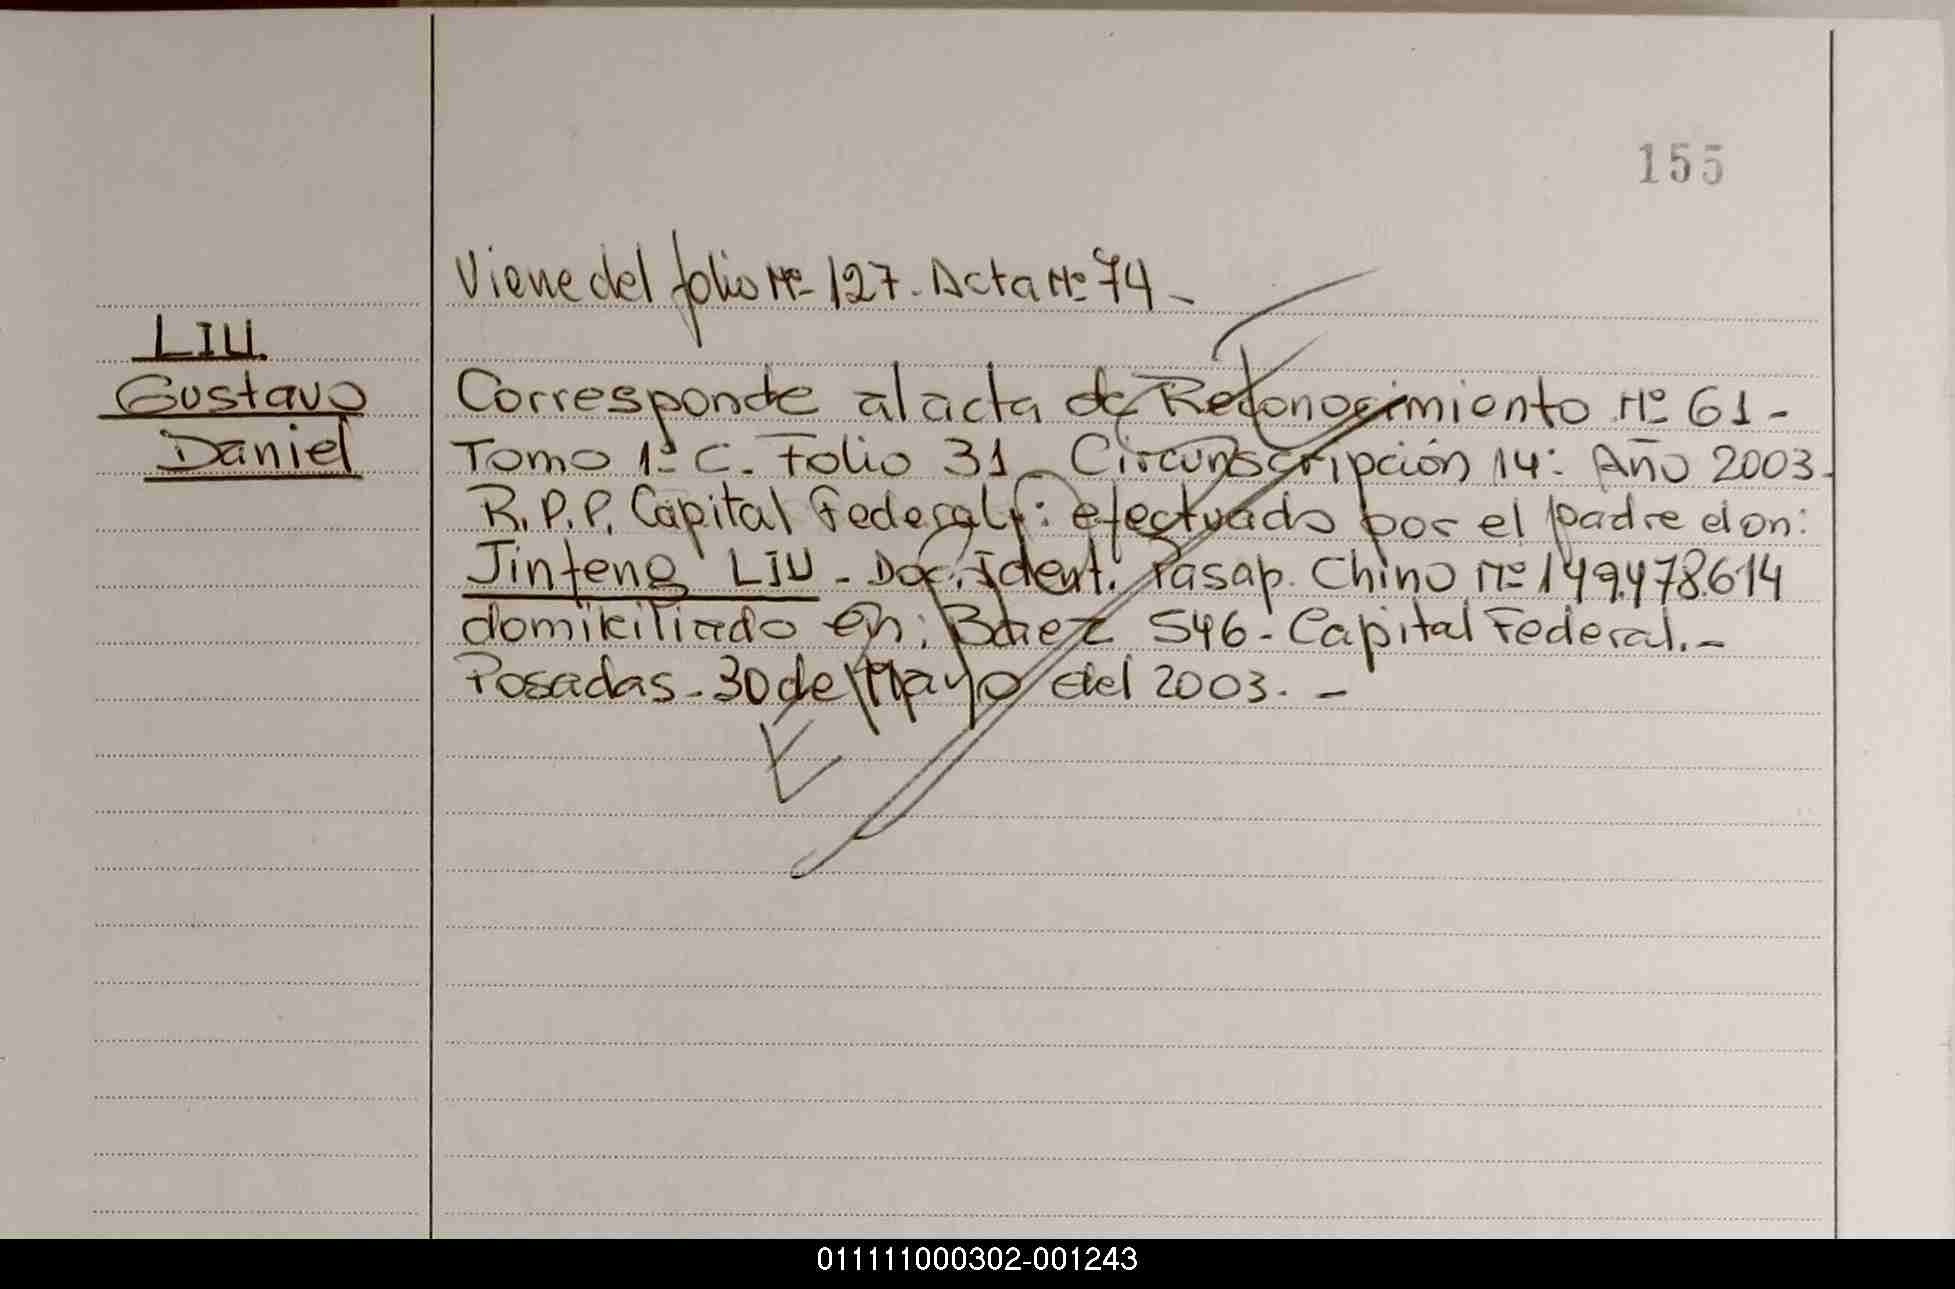 155
Viene del folio Nº 127. Acta Nº 74 -
LIU.
Gustavo
Daniel
Corresponde al acta de Reconocimiento Nº 61 -
Tomo 1º C. Folio 31 - Circunscripción 14: Año 2003.
R.P.P. Capital Federal: efectuado por el padre don:
Jinfeng LIU - Doc. Ident. Pasap. Chino Nº 149.478.614
domiciliado en: Baez 546 - Capital Federal. -
Posadas - 30 de Mayo del 2003. -
011111000302-001243